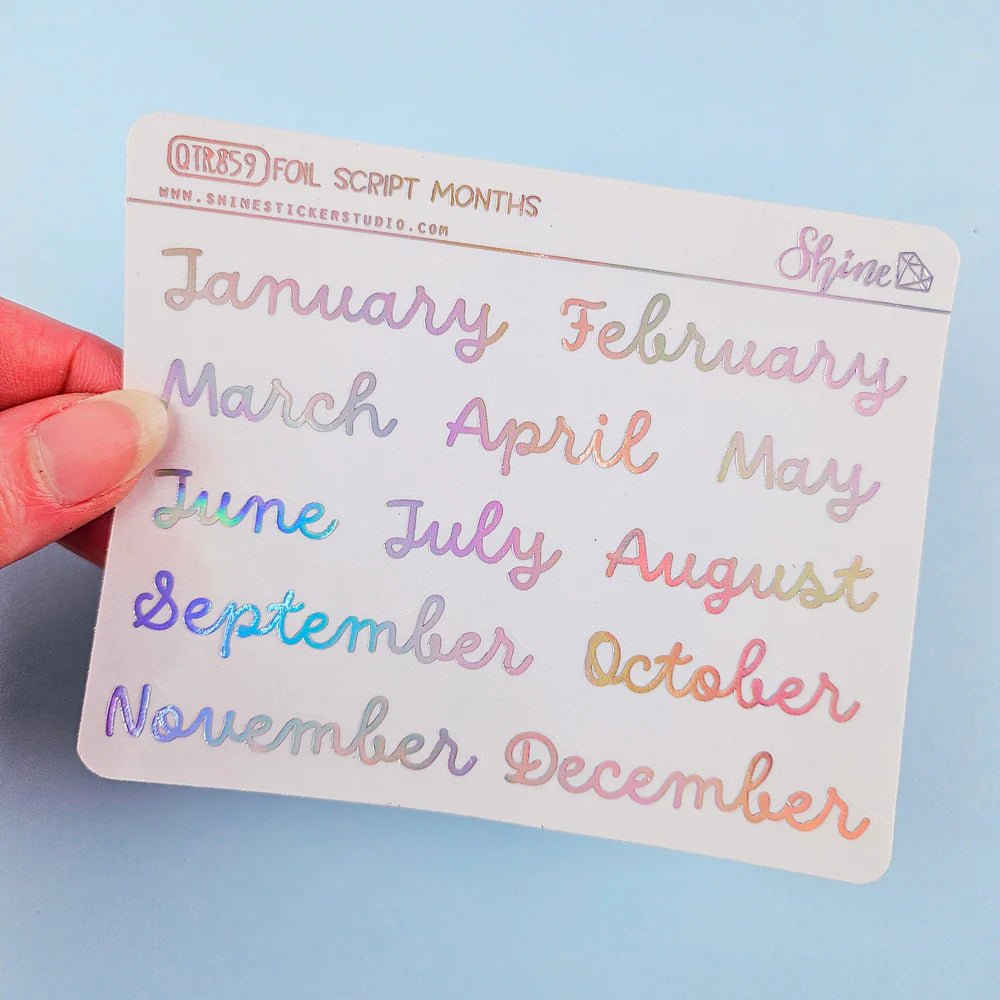 QTR859 FOIL SCRIPT MONTHS
WWW.SHINESTICKERSTUDIO.COM
Shine
January February
March April May
June July August
September October
November December